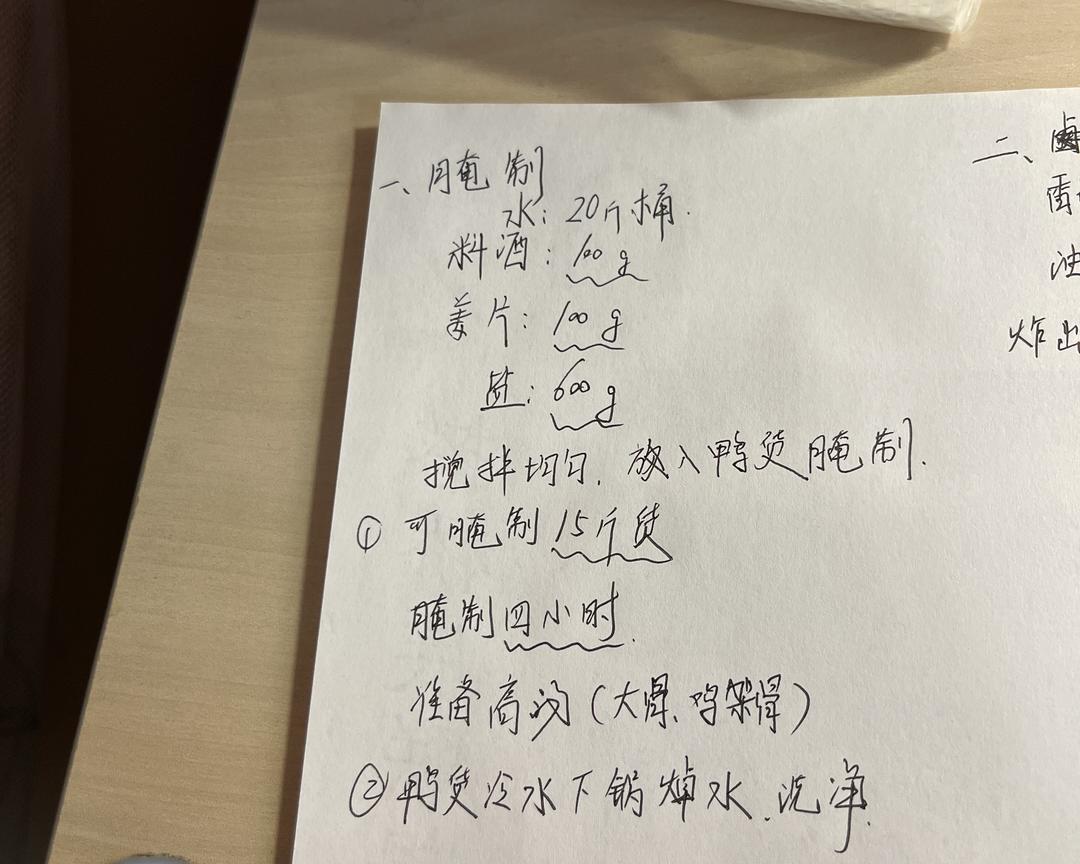 一、腌制
水：20斤桶.
料酒：100g
姜片：100g
盐：600g
搅拌均匀，放入鸭货腌制.
① 可腌制15斤货
腌制四小时.
准备高汤（大骨、鸡架骨）
② 鸭货冷水下锅焯水、洗净.
二、卤
油
炸出